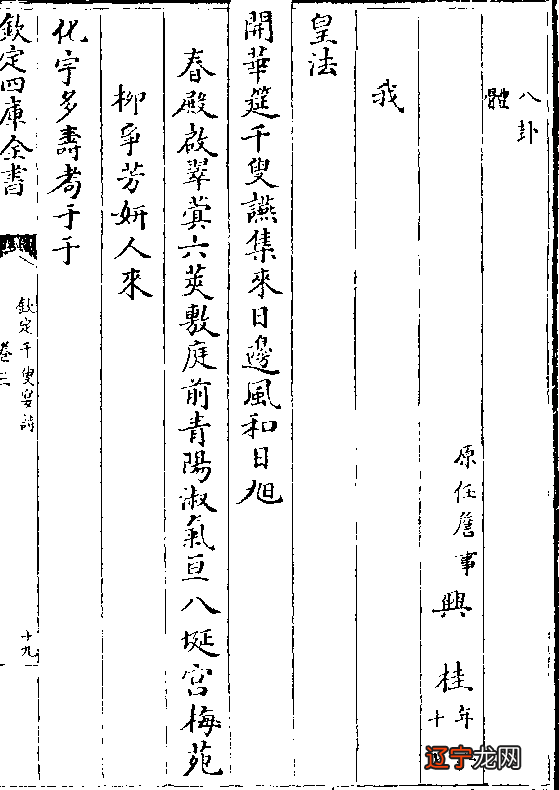 八卦
體
原任詹事興桂年
十
我
皇法
開華筵千叟讌集來日邊風和日旭
春殿啟翠蓂六莢敷庭前青陽淑氣亘八埏宮梅苑
柳爭芳妍人來
化宇多壽耇于于
欽定四庫全書
欽定千叟宴詩
卷三
十九
辽宁龙网